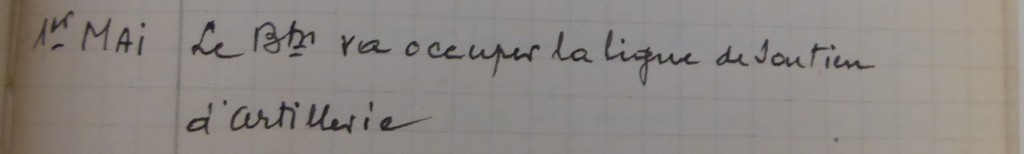 1er MAi Le Btn va occuper la ligne de soutien
d'artillerie